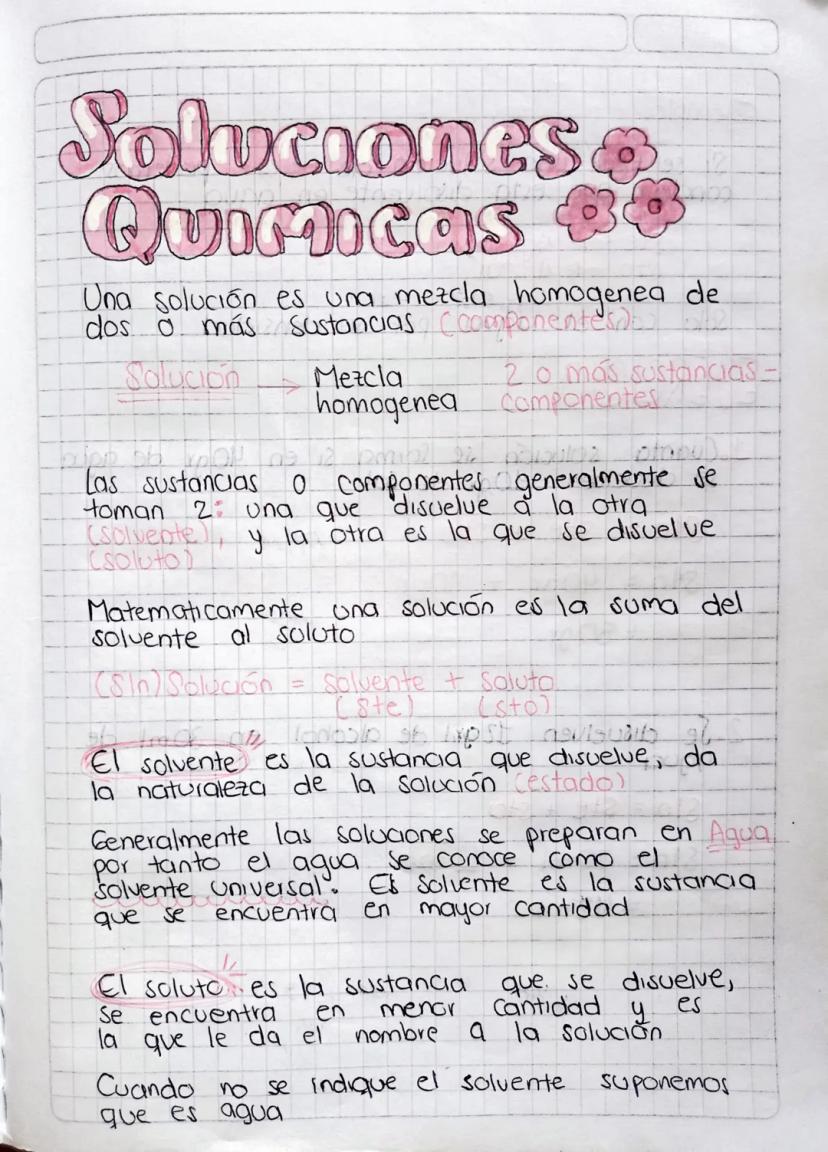 Soluciones
Quimicas
Una solución es una mezcla homogenea de
dos o más sustancias (componentes)
Solución → Mezcla 2 o más sustancias -
homogenea componentes
Las sustancias o componentes generalmente se
toman 2: una que disuelve a la otra
(solvente), y la otra es la que se disuelve
(soluto)
Matematicamente una solución es la suma del
solvente al soluto
(Sln) Solución = solvente + soluto
(ste) (sto)
El solvente es la sustancia que disuelve, da
la naturaleza de la solución (estado)
Generalmente las soluciones se preparan en Agua
por tanto el agua se conoce como el
solvente universal. El solvente es la sustancia
que se encuentra en mayor cantidad
El soluto es la sustancia que se disuelve,
se encuentra en menor cantidad y es
la que le da el nombre a la solución
Cuando no se indique el solvente suponemos
que es agua